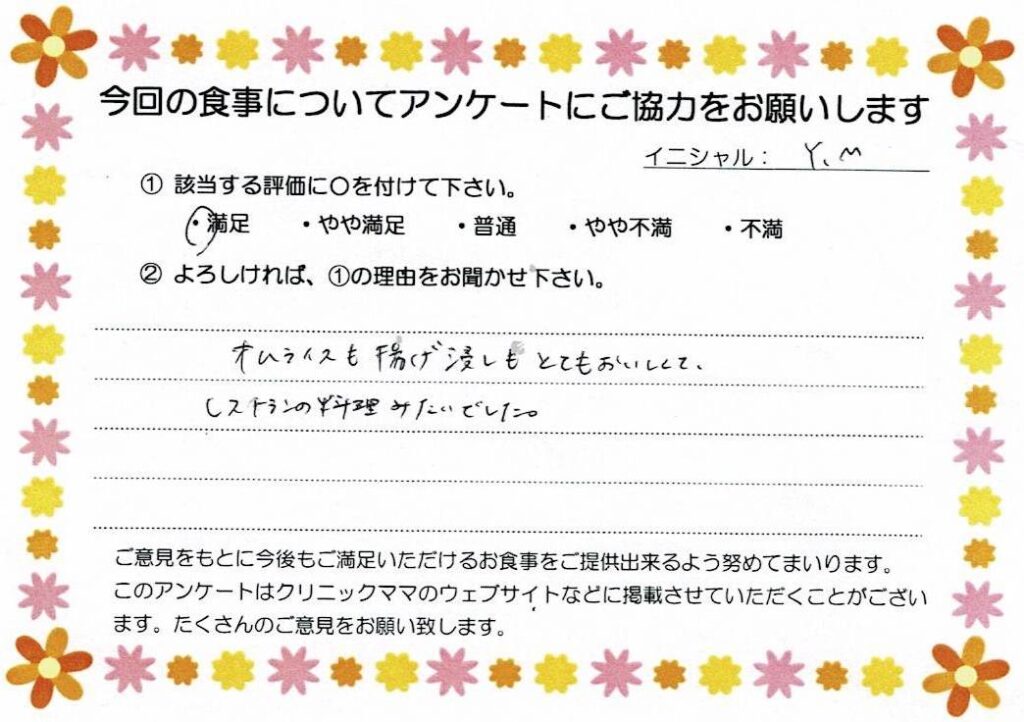 今回の食事についてアンケートにご協力をお願いします
イニシャル： Y.M
① 該当する評価に〇を付けて下さい。
・満足 ・やや満足 ・普通 ・やや不満 ・不満
② よろしければ、①の理由をお聞かせ下さい。
オムライスも揚げ浸しもとてもおいしくて、
レストランの料理みたいでした。
ご意見をもとに今後もご満足いただけるお食事をご提供出来るよう努めてまいります。
このアンケートはクリニックママのウェブサイトなどに掲載させていただくことがござい
ます。たくさんのご意見をお願い致します。